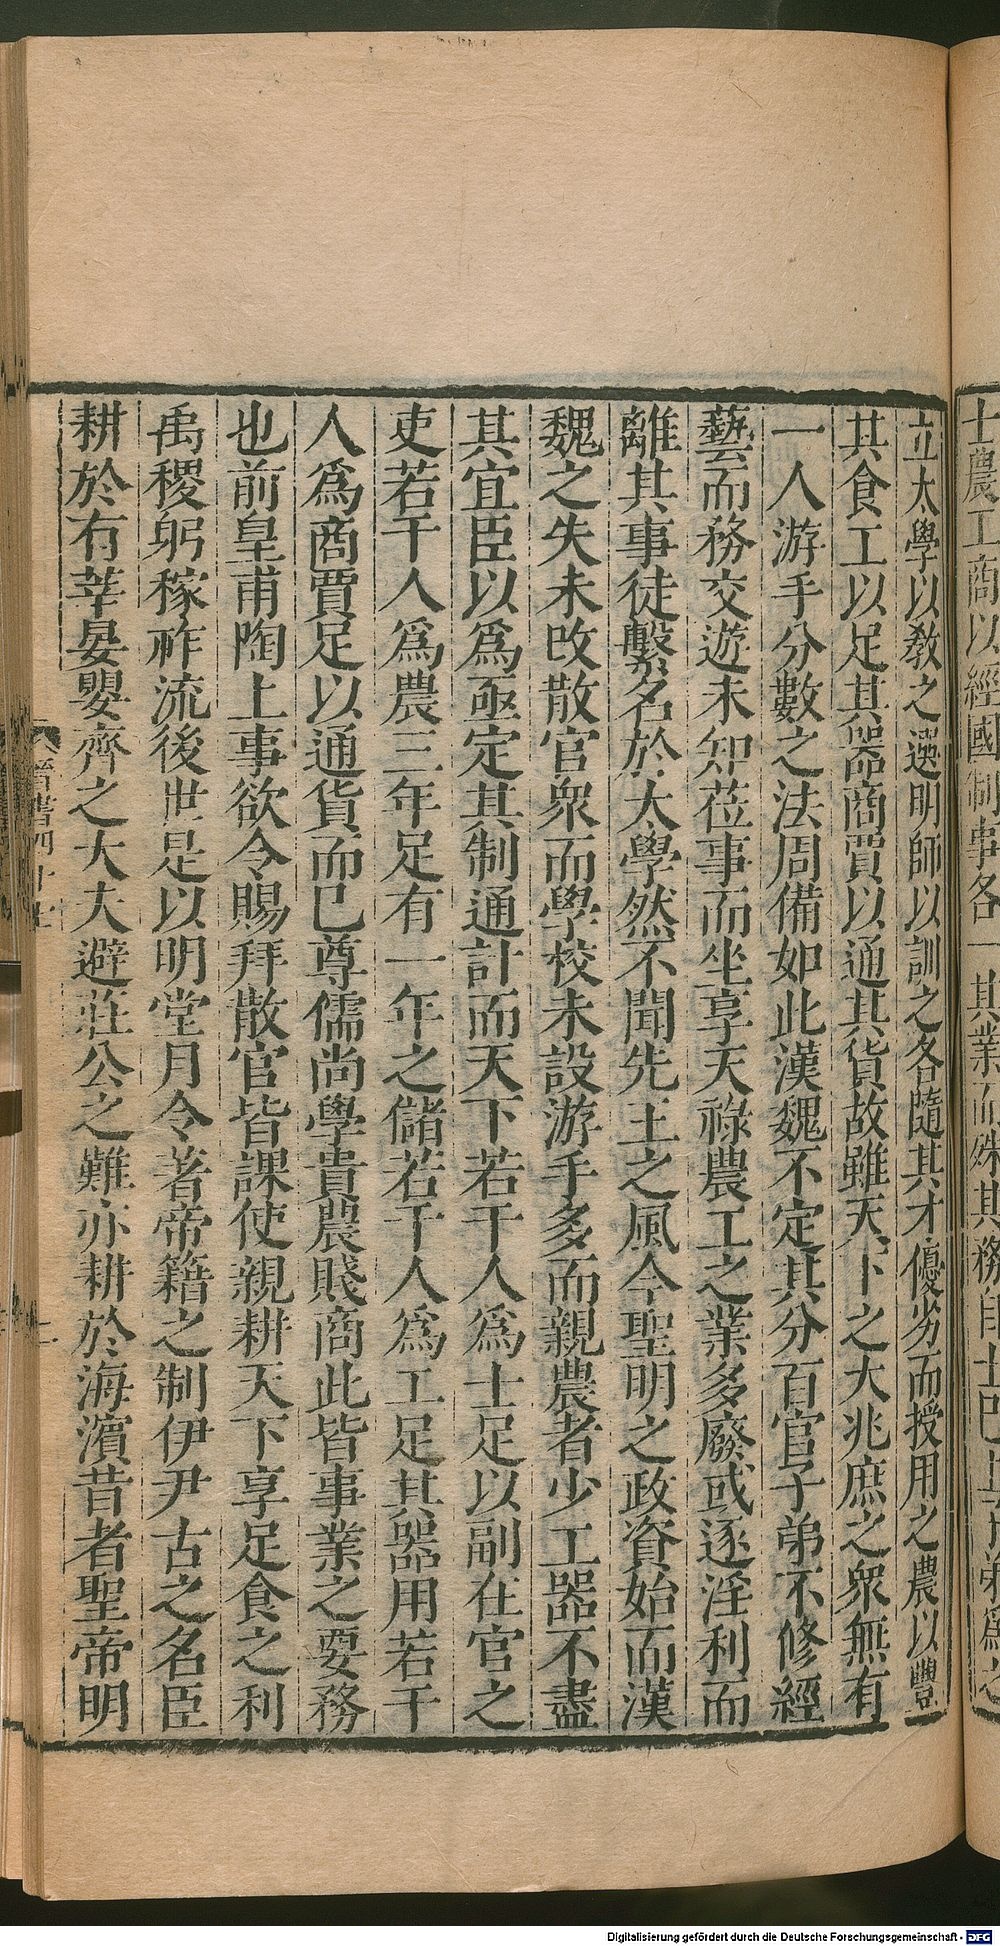 士農工商以經國制事各一其業而殊其務自士巳上子弟爲之
立太學以敎之選明師以訓之各隨其才優劣而授用之農以豐
其食工以足其器商賈以通其貨故雖天下之大兆庶之衆無有
一人游手分數之法周備如此漢魏不定其分百官子弟不修經
藝而務交遊未知莅事而坐享天祿農工之業多廢或逐淫利而
離其事徒繫名於太學然不聞先王之風今聖明之政資始而漢
魏之失未改散官衆而學校未設游手多而親農者少工器不盡
其宜臣以爲亟定其制通計而天下若干人爲士足以副在官之
吏若干人爲農三年足有一年之儲若干人爲工足其器用若干
人爲商賈足以通貨而巳尊儒尚學貴農賤商此皆事業之要務
也前皇甫陶上事欲令賜拜散官皆課使親耕天下享足食之利
禹稷躬稼祚流後世是以明堂月令著帝籍之制伊尹古之名臣
耕於有莘晏嬰齊之大夫避莊公之難亦耕於海濱昔者聖帝明
晉書四十七
二
Digitalisierung gefördert durch die Deutsche Forschungsgemeinschaft - DFG